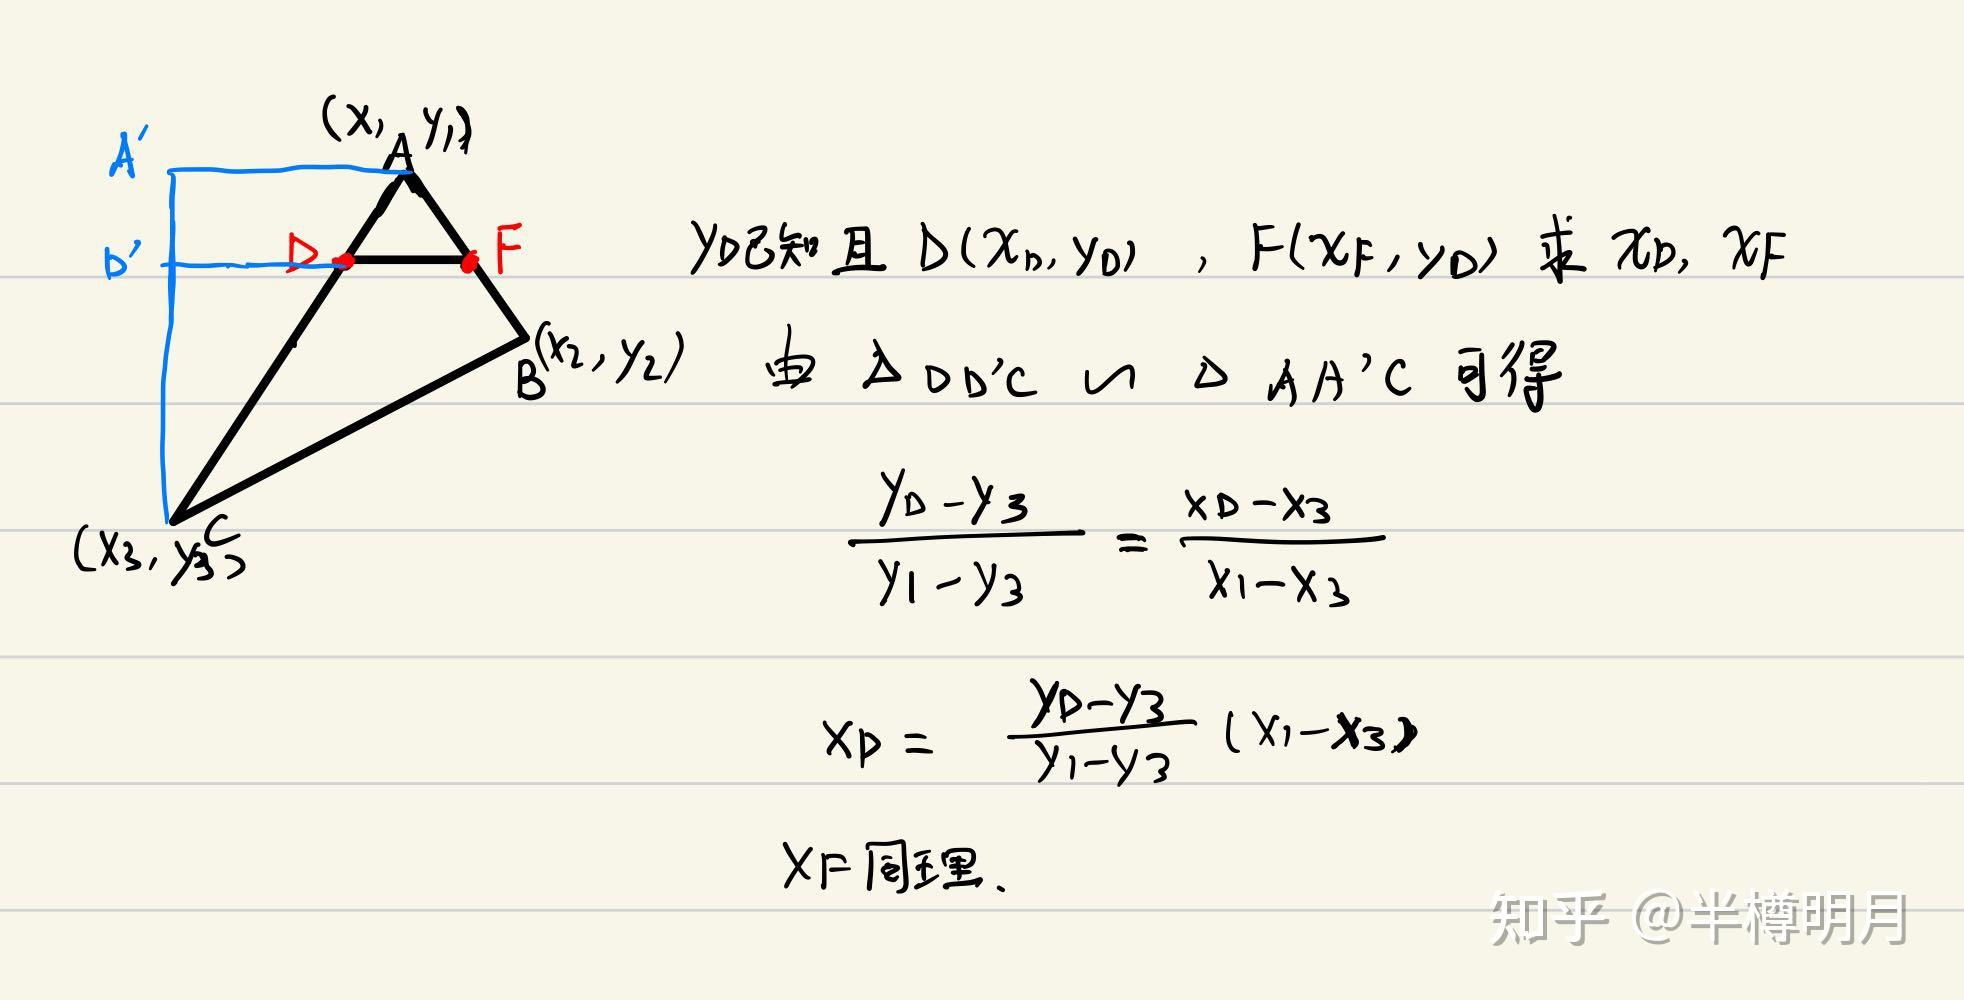 (x1, y1)
A
A'
D'
D
F
B (x2, y2)
C
(x3, y3)
yD已知且 D(xD, yD) , F(xF, yD) 求 xD, xF
由 △DD'C ∽ △AA'C 可得
yD-y3 / y1-y3 = xD-x3 / x1-x3
xD = yD-y3 / y1-y3 (x1-x3)
xF同理.
知乎 @半樽明月